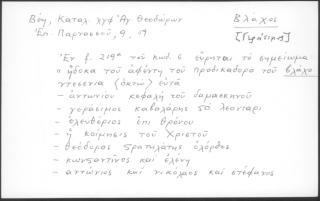 Βέη, Καταλ. χγφ Ἁγ Θεοδώρων Βλάχος
Ἐπ. Παρνασσοῦ, 9, 9
Ἐν f. 219α τοῦ κωδ. 6 εὕρηται τὸ σημείωμα
τοῦ ἀφέντη τοῦ προδικαδορο τοῦ βλάχο
(ὀκτὼ)
- ἀντωνιου κεφαλὴ τοῦ δαμασκηνοῦ
- γεράσιμος καβαλάρης 50 λεονταρι
- ἐλευθέριος ἐπι θρόνου
- ἡ κοίμησις τοῦ Χριστοῦ
- θεόδωρος στρατηλάτης ὁλόρθος
- κωνσταντίνος καὶ ἑλένη
- αντώνιος καὶ νικόλαος καὶ στέφανος